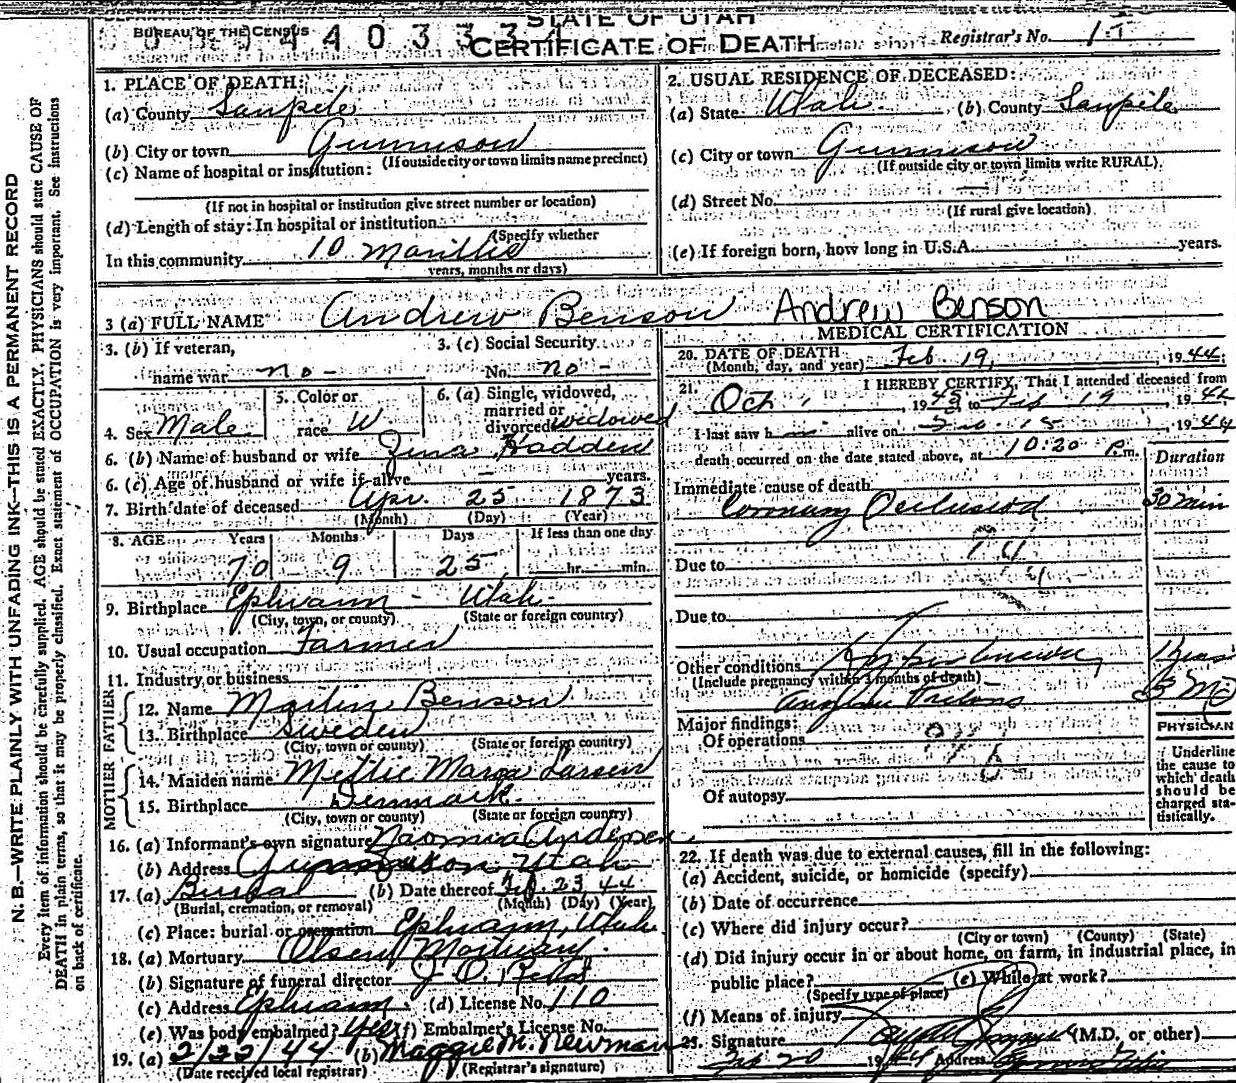 STATE OF UTAH
BUREAU OF THE CENSUS
CERTIFICATE OF DEATH
Registrar's No.
N. B.—WRITE PLAINLY WITH UNFADING INK—THIS IS A PERMANENT RECORD
Every item of information should be carefully supplied. AGE should be stated EXACTLY. PHYSICIANS should state CAUSE OF
DEATH in plain terms, so that it may be properly classified. Exact statement of OCCUPATION is very important. See instructions
on back of certificate.
1. PLACE OF DEATH:
(a) County Sanpete
(b) City or town Gunnison
(If outside city or town limits name precinct)
(c) Name of hospital or institution:
(If not in hospital or institution give street number or location)
(d) Length of stay: In hospital or institution
(Specify whether
In this community 10 Months
years, months or days)
2. USUAL RESIDENCE OF DECEASED:
(a) State Utah (b) County Sanpete
(c) City or town Gunnison
(If outside city or town limits write RURAL)
(d) Street No.
(If rural give location)
(e) If foreign born, how long in U.S.A. years.
3 (a) FULL NAME Andrew Benson Andrew Benson
3. (b) If veteran, 3. (c) Social Security
name war no - No. no -
4. Sex Male 5. Color or race W 6. (a) Single, widowed, married or divorced widowed
6. (b) Name of husband or wife Zina Hadden
6. (c) Age of husband or wife if alive years.
7. Birth date of deceased Apr. 25 1873
(Month) (Day) (Year)
8. AGE Years Months Days If less than one day
70 9 25 hr. min.
9. Birthplace Ephraim - Utah -
(City, town, or county) (State or foreign country)
10. Usual occupation Farmer
11. Industry or business
FATHER
12. Name Martin Benson
13. Birthplace Sweden
(City, town or county) (State or foreign country)
MOTHER
14. Maiden name Mettie Maria Larsen
15. Birthplace Denmark.
(City, town or county) (State or foreign country)
16. (a) Informant's own signature Naomia Andersen
(b) Address Gunnison Utah
17. (a) Burial (b) Date thereof Feb. 23 44
(Burial, cremation, or removal) (Month) (Day) (Year)
(c) Place: burial or cremation Ephraim, Utah
18. (a) Mortuary Olsen Mortuary.
(b) Signature of funeral director
(c) Address Ephraim. (d) License No. 110
(e) Was body embalmed? Yes (f) Embalmer's License No.
19. (a) 2/22/44 (b) Maggie M. Newman
(Date received local registrar) (Registrar's signature)
MEDICAL CERTIFICATION
20. DATE OF DEATH Feb. 19, 1944
(Month, day, and year)
21. I HEREBY CERTIFY, That I attended deceased from
Oct. 19 to Feb 19 19
I last saw h alive on 1944
death occurred on the date stated above, at 10:20 P.m.
Duration
Immediate cause of death
Coronary Occlusion 30 min
Due to
Due to
Other conditions
(Include pregnancy within 3 months of death)
Major findings:
Of operations
Of autopsy
PHYSICIAN
Underline
the cause to
which death
should be
charged sta-
tistically.
22. If death was due to external causes, fill in the following:
(a) Accident, suicide, or homicide (specify)
(b) Date of occurrence
(c) Where did injury occur?
(City or town) (County) (State)
(d) Did injury occur in or about home, on farm, in industrial place, in
public place? (e) While at work?
(Specify type of place)
(f) Means of injury
23. Signature (M.D. or other)
Feb 20 1944 Address